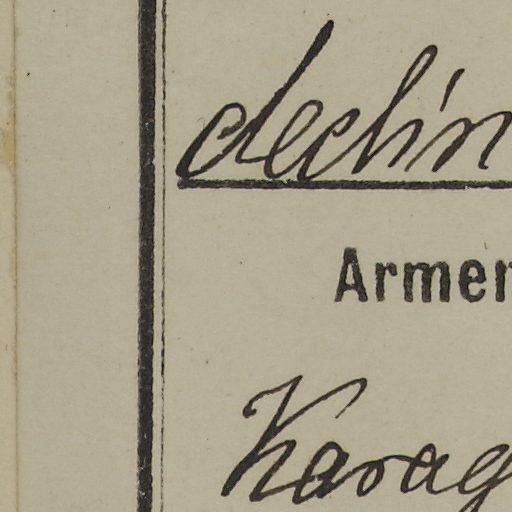 declin
Armen
Karag